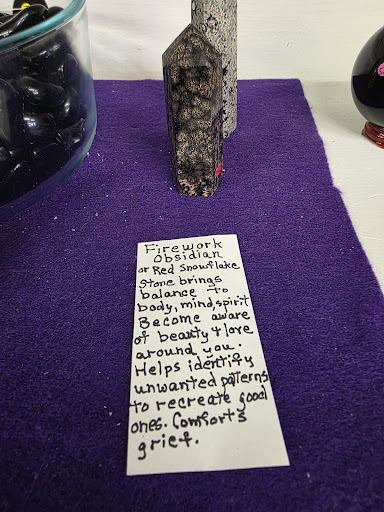 Firework
Obsidian
or Red Snowflake
Stone brings
balance to
body, mind, spirit
Become aware
of beauty & love
around you.
Helps identify
unwanted paterns
to recreate good
ones. Comforts
grief.